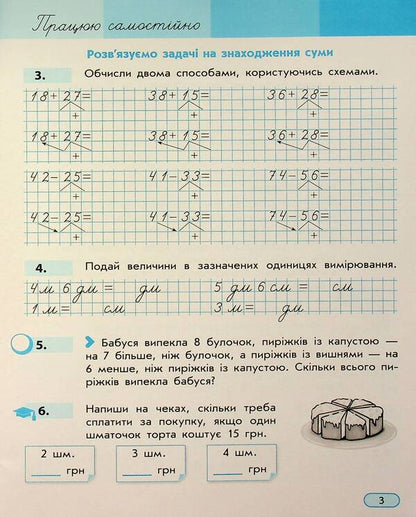 Працюю самостійно
Розв'язуємо задачі на знаходження суми
3. Обчисли двома способами, користуючись схемами.
18+27= 38+15= 36+28=
+ + +
18+27= 38+15= 36+28=
+ + +
42-25= 41-33= 74-56=
+ + +
42-25= 41-33= 74-56=
+ + +
4. Подай величини в зазначених одиницях вимірювання.
4 м 6 дм = дм 5 дм 6 см = см
1 м = см 3 м = дм
5. Бабуся випекла 8 булочок, пиріжків із капустою —
на 7 більше, ніж булочок, а пиріжків із вишнями — на
6 менше, ніж пиріжків із капустою. Скільки всього пи-
ріжків випекла бабуся?
6. Напиши на чеках, скільки треба
сплатити за покупку, якщо один
шматочок торта коштує 15 грн.
2 шт. 3 шт. 4 шт.
____ грн ____ грн ____ грн
3